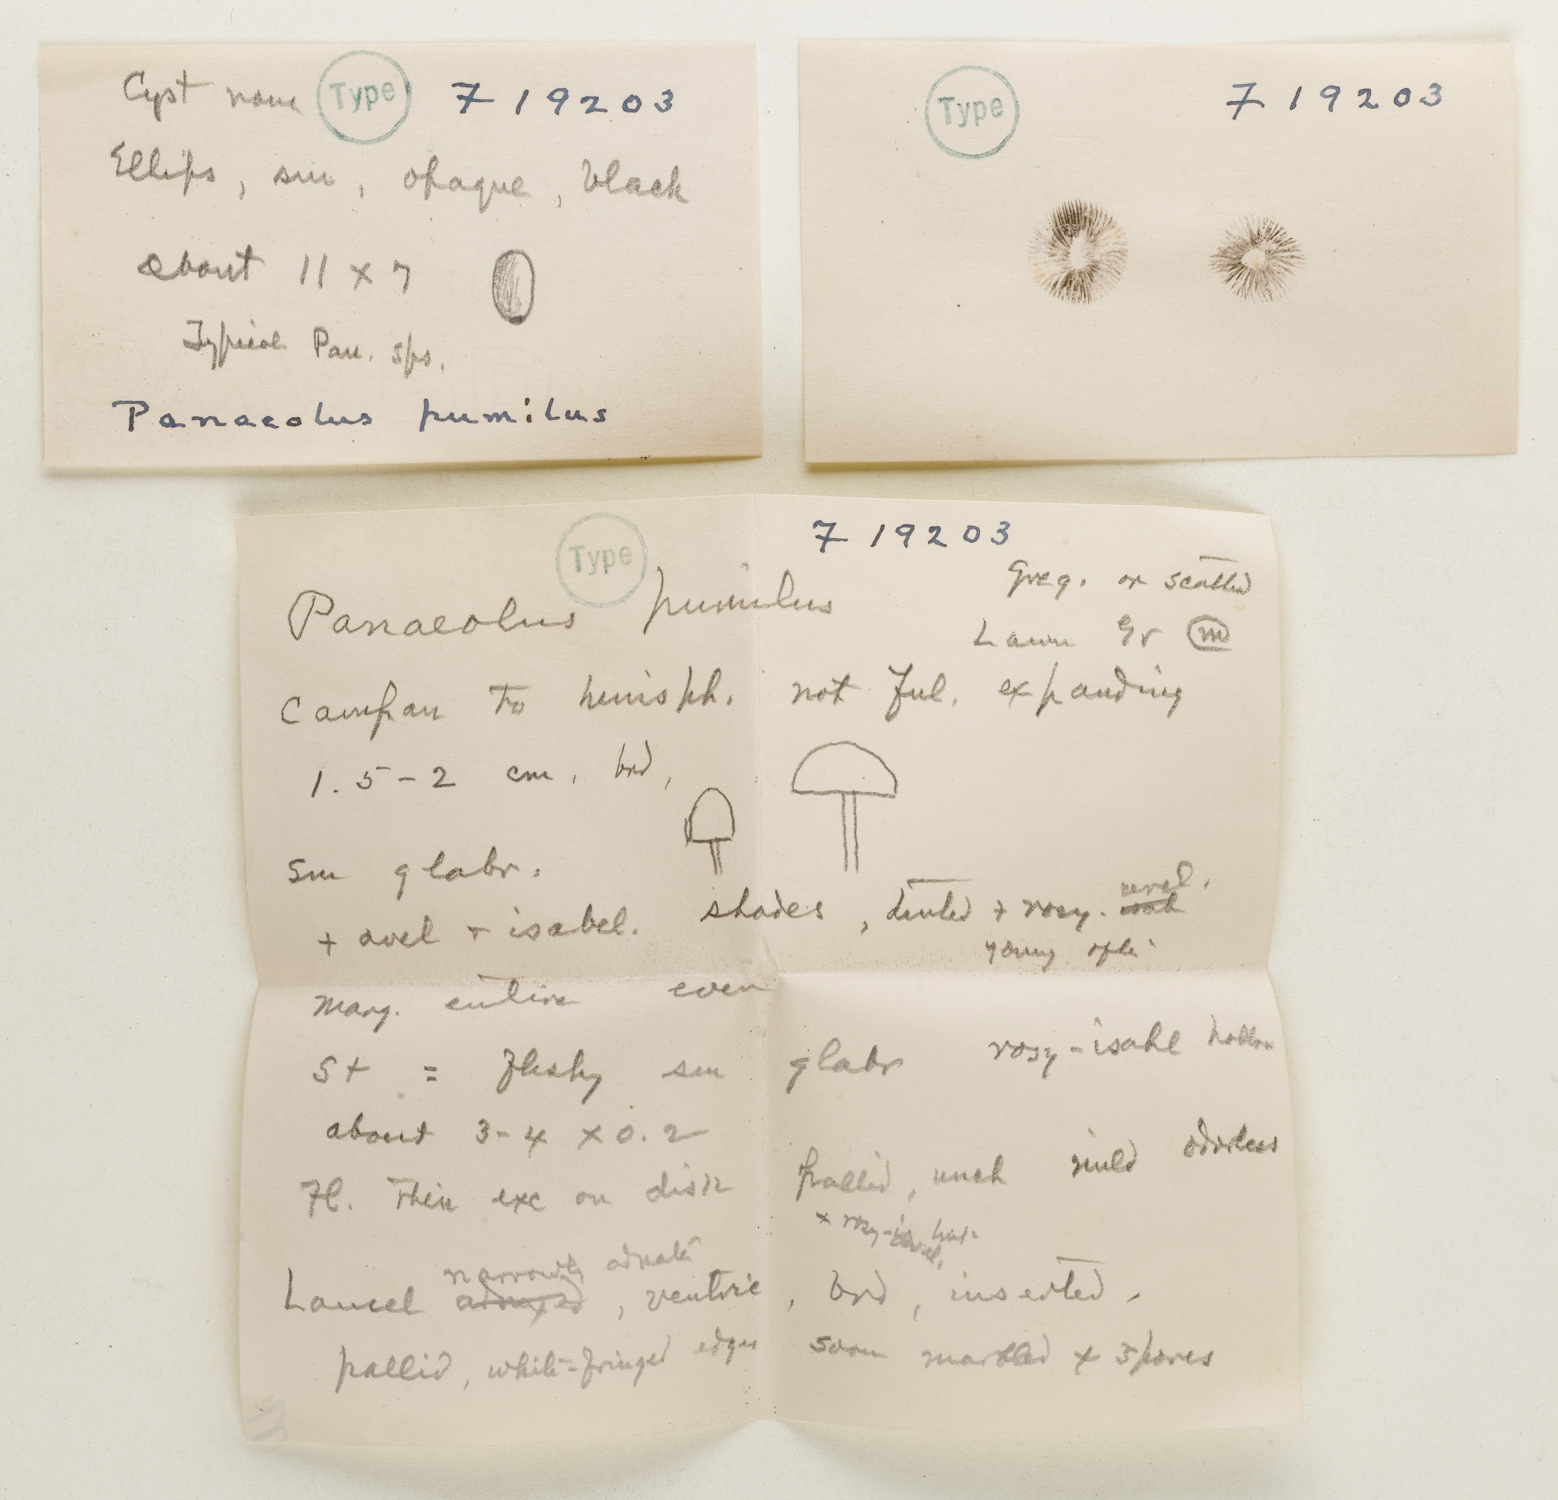 Cyst none Type 7 19203
Ellips, sm, opaque, black
about 11 x 7
Typical Pan. sps.
Panaeolus pumilus
Type 7 19203
Type 7 19203
Panaeolus pumilus
Greg. or scatted
Lawn Gr m
Campan to hemisph. not ful. expanding
1.5-2 cm, brd,
sm glabr.
+ avel + isabel. shades, tinted + rosy. avel.
young often
marg. entire even
St = fleshy sm glabr rosy-isabl hollow
about 3-4 x 0.2
Fl. thin exc on disk pallid, unch mild odorless
x rosy-
narrowly adnate
Lancel adnexed, ventric, brd, inserted.
pallid, white-fringed edges soon marbled x spores